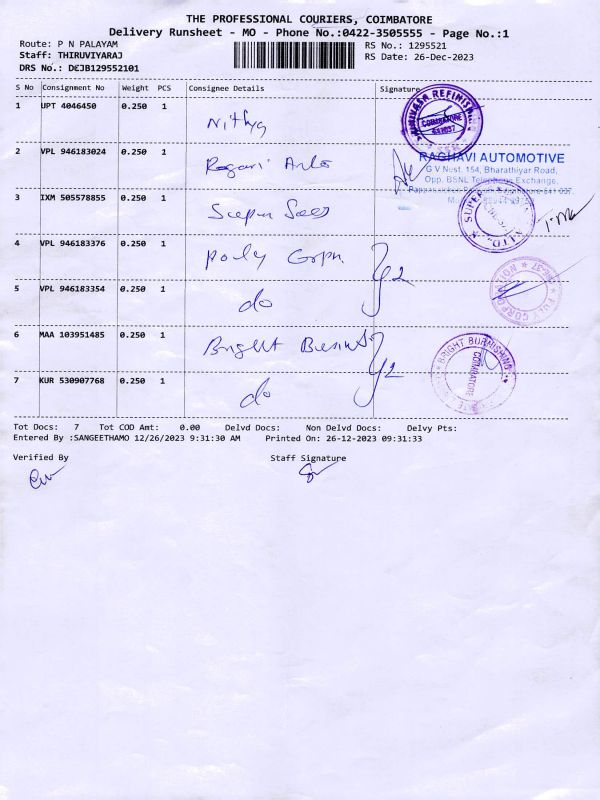 THE PROFESSIONAL COURIERS, COIMBATORE
Delivery Runsheet - MO - Phone No.:0422-3505555 - Page No.:1
Route: P N PALAYAM
RS No.: 1295521
Staff: THIRUVIYARAJ
RS Date: 26-Dec-2023
DRS No.: DCJB129552101
S No Consignment No Weight PCS Consignee Details Signature
1 UPT 4046450 0.250 1 Nithya
REFINISHING COIMBATORE
2 VPL 946183024 0.250 1
RAGHAVI AUTOMOTIVE
G V Nest. 154, Bharathiyar Road,
Opp. BSNL Telephone Exchange,
3 IXM 505578855 0.250 1
SUPER
4 VPL 946183376 0.250 1 Poly
5 VPL 946183354 0.250 1 do
6 MAA 103951485 0.250 1 Bright
BRIGHT BURNISHING COIMBATORE
7 KUR 530907768 0.250 1 do
Tot Docs: 7 Tot COD Amt: 0.00 Delvd Docs: Non Delvd Docs: Delvy Pts:
Entered By :SANGEETHAMO 12/26/2023 9:31:30 AM Printed On: 26-12-2023 09:31:33
Verified By Staff Signature